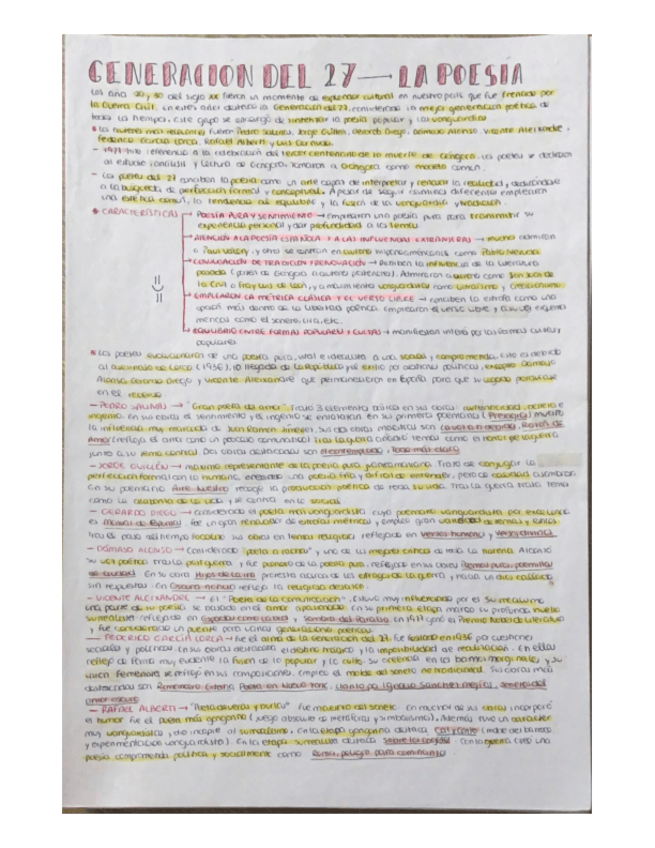 GENERACIÓN DEL 27 — LA POESÍA
Los años 20 y 30 del siglo XX fueron un momento de esplendor cultural en nuestro país que fue frenado por
la Guerra Civil. En estos años destaca la Generación del 27, considerada la mejor generación poética de
todos los tiempos. Este grupo se encargó de sintetizar la poesía popular y las vanguardias
Los autores más relevantes fueron Pedro Salinas, Jorge Guillén, Gerardo Diego, Dámaso Alonso, Vicente Aleixandre,
Federico García Lorca, Rafael Alberti y Luis Cernuda.
- 1927 hace referencia a la celebración del tercer centenario de la muerte de Góngora. Los poetas se dedicaron
al estudio y lectura de Góngora. Tomaron a Góngora como modelo común.
- Los poetas del 27 conciben la poesía como un arte capaz de interpretar y renovar la realidad,
a la búsqueda de perfección formal y conceptual. A pesar de seguir caminos diferentes emplearon
una estética común, la tendencia al equilibrio y la fusión de la vanguardia y tradición.
CARACTERÍSTICAS → POESÍA PURA Y SENTIMIENTO → emplearon una poesía pura para transmitir su
experiencia personal y dar profundidad a los temas
ATENCIÓN A LA POESÍA ESPAÑOLA Y A LAS INFLUENCIAS EXTRANJERAS → mucho admiran
a Paul Valéry, y otros se centran en autores hispanoamericanos como Pablo Neruda
CONJUGACIÓN DE TRADICIÓN Y RENOVACIÓN → reciben la influencia de la literatura
pasada (parten de Góngora a autores posteriores). Admiraron a autores como San Juan de
la Cruz o Fray Luis de León, y a movimientos vanguardistas como ultraísmo y creacionismo
EMPLEARON LA MÉTRICA CLÁSICA Y EL VERSO LIBRE → conciben la estrofa como una
opción más dentro de la libertad poética. Emplearon el verso libre y a su vez esquemas
métricos como el soneto, lira, etc.
EQUILIBRIO ENTRE FORMAS POPULARES Y CULTAS → manifiestan interés por las formas cultas y
populares
Los poetas evolucionaron de una poesía pura, vital e idealista a una social y comprometida. Esto es debido
al asesinato de Lorca (1936), la llegada de la República y el exilio por cuestiones políticas, excepto Dámaso
Alonso, Gerardo Diego y Vicente Aleixandre que permanecieron en España para que su legado
en el recuerdo.
— PEDRO SALINAS → "Gran poeta del amor". Trata 3 elementos básicos en sus obras: autenticidad, belleza e
ingenio. En sus obras el sentimiento y el ingenio se entrelazan. En su primer poemario (Presagios) muestra
la influencia muy marcada de Juan Ramón Jiménez. Sus dos obras maestras son La voz a ti debida, Razón de
Amor (refleja el amor como un proceso comunicativo). Tras la guerra añadió temas como el horror de la guerra
junto a su tema central. Dos obras destacadas son El contemplado, Todo más claro
— JORGE GUILLÉN → máximo representante de la poesía pura juanramoniana. Trata de conjugar la
perfección formal con lo humano, creando una poesía fría y difícil de entender, pero de
En su poemario Aire Nuestro recoge la producción poética de toda su vida. Tras la guerra trata temas
como la de la vida y se centra en lo social
— GERARDO DIEGO → considerado el poeta más vanguardista cuyo poemario vanguardista por excelencia
es Manual de Espumas. Fue un gran renovador de estrofas métricas y empleó gran variedad de temas y estilos
tras el paso del tiempo focalizó su obra en temas religiosos reflejados en Versos humanos y Versos divinos
— DÁMASO ALONSO → Considerado "poeta a rachas" y uno de los mejores críticos de toda la historia. Alcanzó
su voz poética tras la postguerra y fue pionero de la poesía pura, reflejada en su obra Poemas puros, poemillas
de ciudad. En su obra Hijos de la ira protesta acerca de los estragos de la guerra y hacia un dios callado
sin respuestas. En Oscura noticia refleja la
— VICENTE ALEIXANDRE → el "Poeta de la comunicación". Estuvo muy influenciado por el surrealismo
una parte de su poesía se basada en el amor apasionado. En su primera etapa marcó su profunda huella
surrealista reflejada en Espadas como labios y Sombra del Paraíso. En 1977 ganó el Premio Nobel de Literatura
y fue considerado un puente para varias generaciones poéticas
— FEDERICO GARCÍA LORCA → fue el alma de la generación del 27. Fue fusilado en 1936 por cuestiones
sociales y políticas. En sus obras destacaron el destino trágico y la imposibilidad de realización. En ellas
reflejó de forma muy evidente la fusión de lo popular y lo culto, su creencia en los barrios marginales, y su
visión femenina se reflejó en sus composiciones. Empleó el molde del soneto no tradicional. Sus obras más
destacadas son Romancero Gitano, Poeta en Nueva York, Llanto por Ignacio Sánchez Mejías, Sonetos del
amor oscuro
— RAFAEL ALBERTI → fue maestro del soneto. En muchas de sus obras incorporó
el humor. Fue el poeta más gongorino (juego absoluto de metáforas y simbolismos). Además tuvo un carácter
muy vanguardista, dio inspire al surrealismo. En la etapa gongorina destaca Cal y canto (índole del barroco
y experimentación vanguardista). En la etapa surrealista destaca Sobre los ángeles. Con la guerra creó una
poesía comprometida política y socialmente como